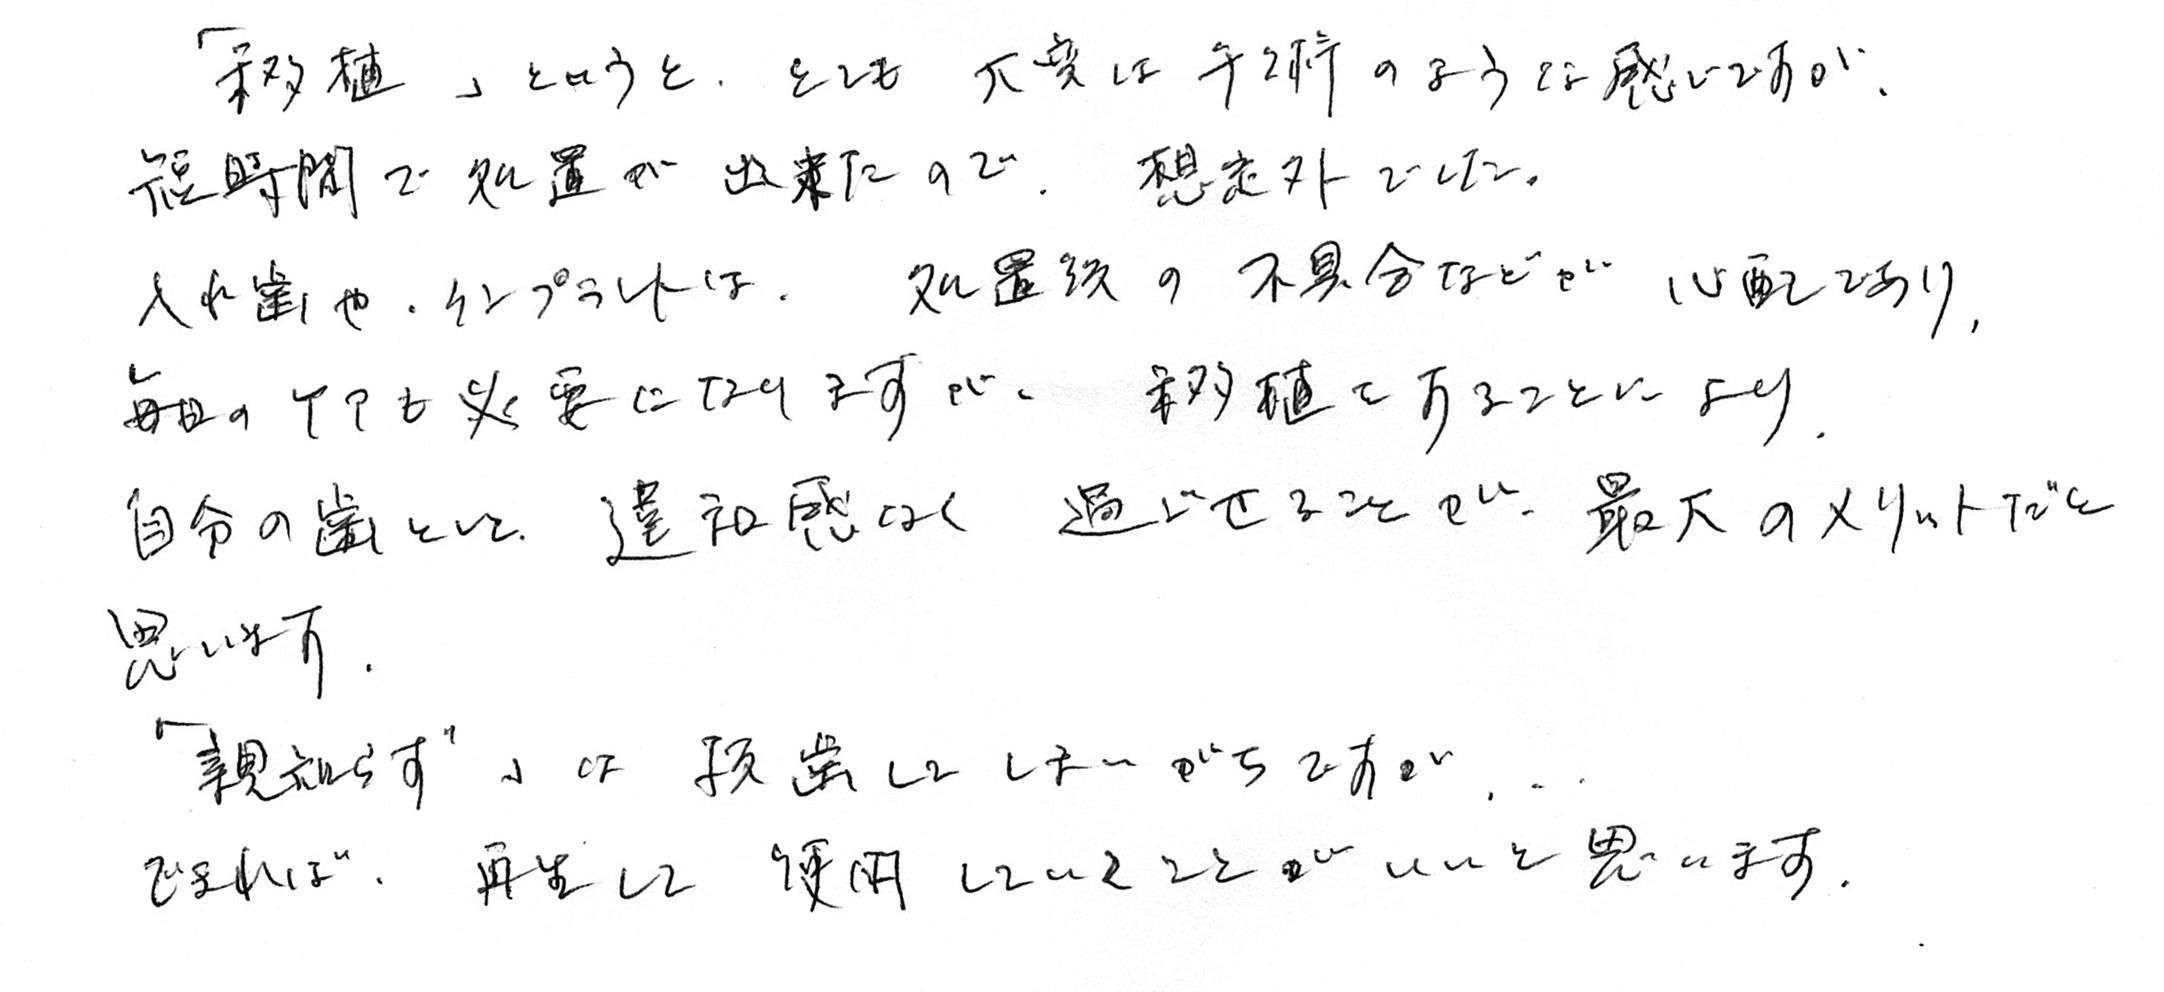 「移植」というと、とても大変な手術のような感じですが、
短時間で処置が出来たので、想定外でした。
入れ歯や、インプラントは、処置後の不具合などが心配であり、
毎日のケアも必要になりますが、移植をすることにより、
自分の歯として、違和感なく過ごせることが、最大のメリットだと
思います。
「親知らず」は抜歯してしまいがちですが、...
できれば、再生して使用していくことがいいと思います。